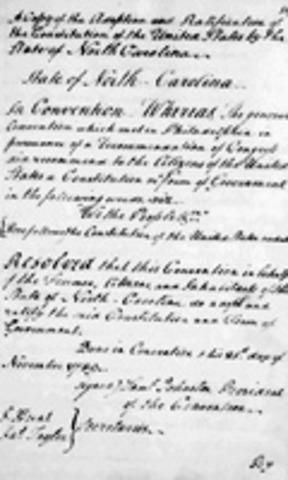 A Copy of the Adoption and Ratification of
the Constitution of the United States by the
State of North Carolina
State of North Carolina
In Convention Whereas The general
Convention which met in Philadelphia in
pursuance of a recommendation of Congress
did recommend to the Citizens of the United
States a Constitution or form of Government
in the following words viz
We the People &c
Here follows the Constitution of the United States
Resolved that this Convention in behalf
of the freemen, Citizens and Inhabitants of the
State of North Carolina do adopt and
ratify the said Constitution and Form of
Government.
Done in Convention this 21st day of
November 1789
Saml Johnston President
of the Convention
J Hunt
Jas Taylor } Secretaries
By